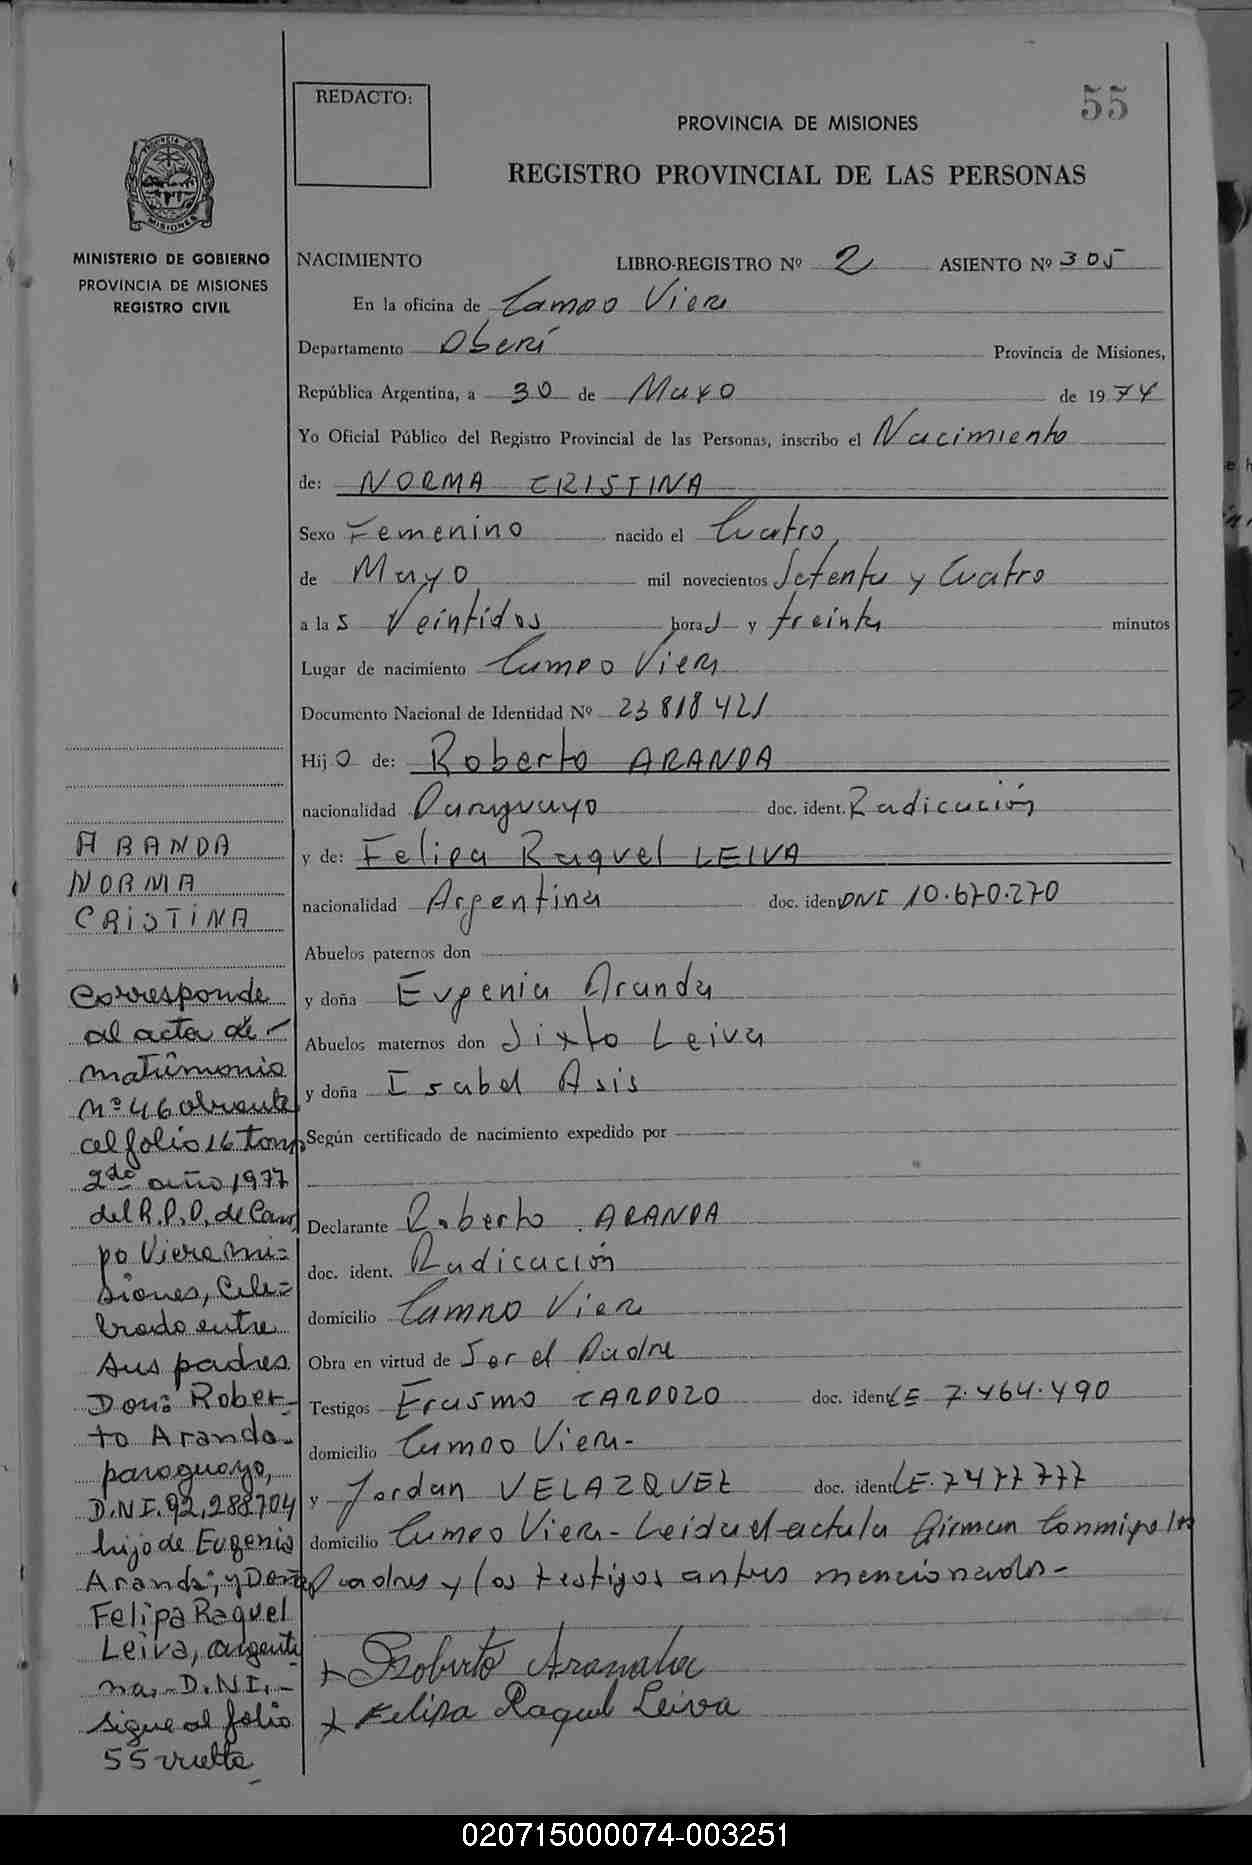 REDACTO:
55
PROVINCIA DE MISIONES
REGISTRO PROVINCIAL DE LAS PERSONAS
PROVINCIA DE
MISIONES
MINISTERIO DE GOBIERNO
PROVINCIA DE MISIONES
REGISTRO CIVIL
NACIMIENTO LIBRO-REGISTRO Nº 2 ASIENTO Nº 305
En la oficina de Campo Viera
Departamento Oberí
Provincia de Misiones,
República Argentina, a 30 de Mayo de 1974
Yo Oficial Público del Registro Provincial de las Personas, inscribo el Nacimiento
de: NORMA CRISTINA
Sexo Femenino nacido el Cuatro,
de Mayo mil novecientos Setenta y Cuatro
a las Veintidos horas y treinta minutos
Lugar de nacimiento Campo Viera
Documento Nacional de Identidad Nº 23818421
Hijo de: Roberto ARANDA
nacionalidad Paraguayo doc. ident. Radicación
y de: Felipa Raquel LEIVA
nacionalidad Argentina doc. iden DNI 10.670.270
Abuelos paternos don
y doña Eugenia Aranda
Abuelos maternos don Sixto Leiva
y doña Isabel Asis
Según certificado de nacimiento expedido por
Declarante Roberto ARANDA
doc. ident. Radicación
domicilio Campo Viera
Obra en virtud de Ser el Padre
Testigos Erasmo CARDOZO doc. ident LE 7.464.490
domicilio Campo Viera-
y Jordan VELAZQUEZ doc. ident LE. 7477777
domicilio Campo Viera- Leida el acta la firman Conmigo los
Padres y los testigos antes mencionados-
+ Roberto Aranda
+ Felipa Raquel Leiva
ARANDA
NORMA
CRISTINA
Corresponde
al acta de
matrimonio
Nº 46 obrante
al folio 16 tomo
2do año 1977
del R.P.P. de Cam
po Viera Mi=
siones, Cele=
brado entre
sus padres
Don: Rober-
to Aranda-
paraguayo,
D.N.I. 92.288704
hijo de Eugenia
Aranda; y Doña
Felipa Raquel
Leiva, argenti
na.- D.N.I.-
sigue al folio
55 vuelta
020715000074-003251